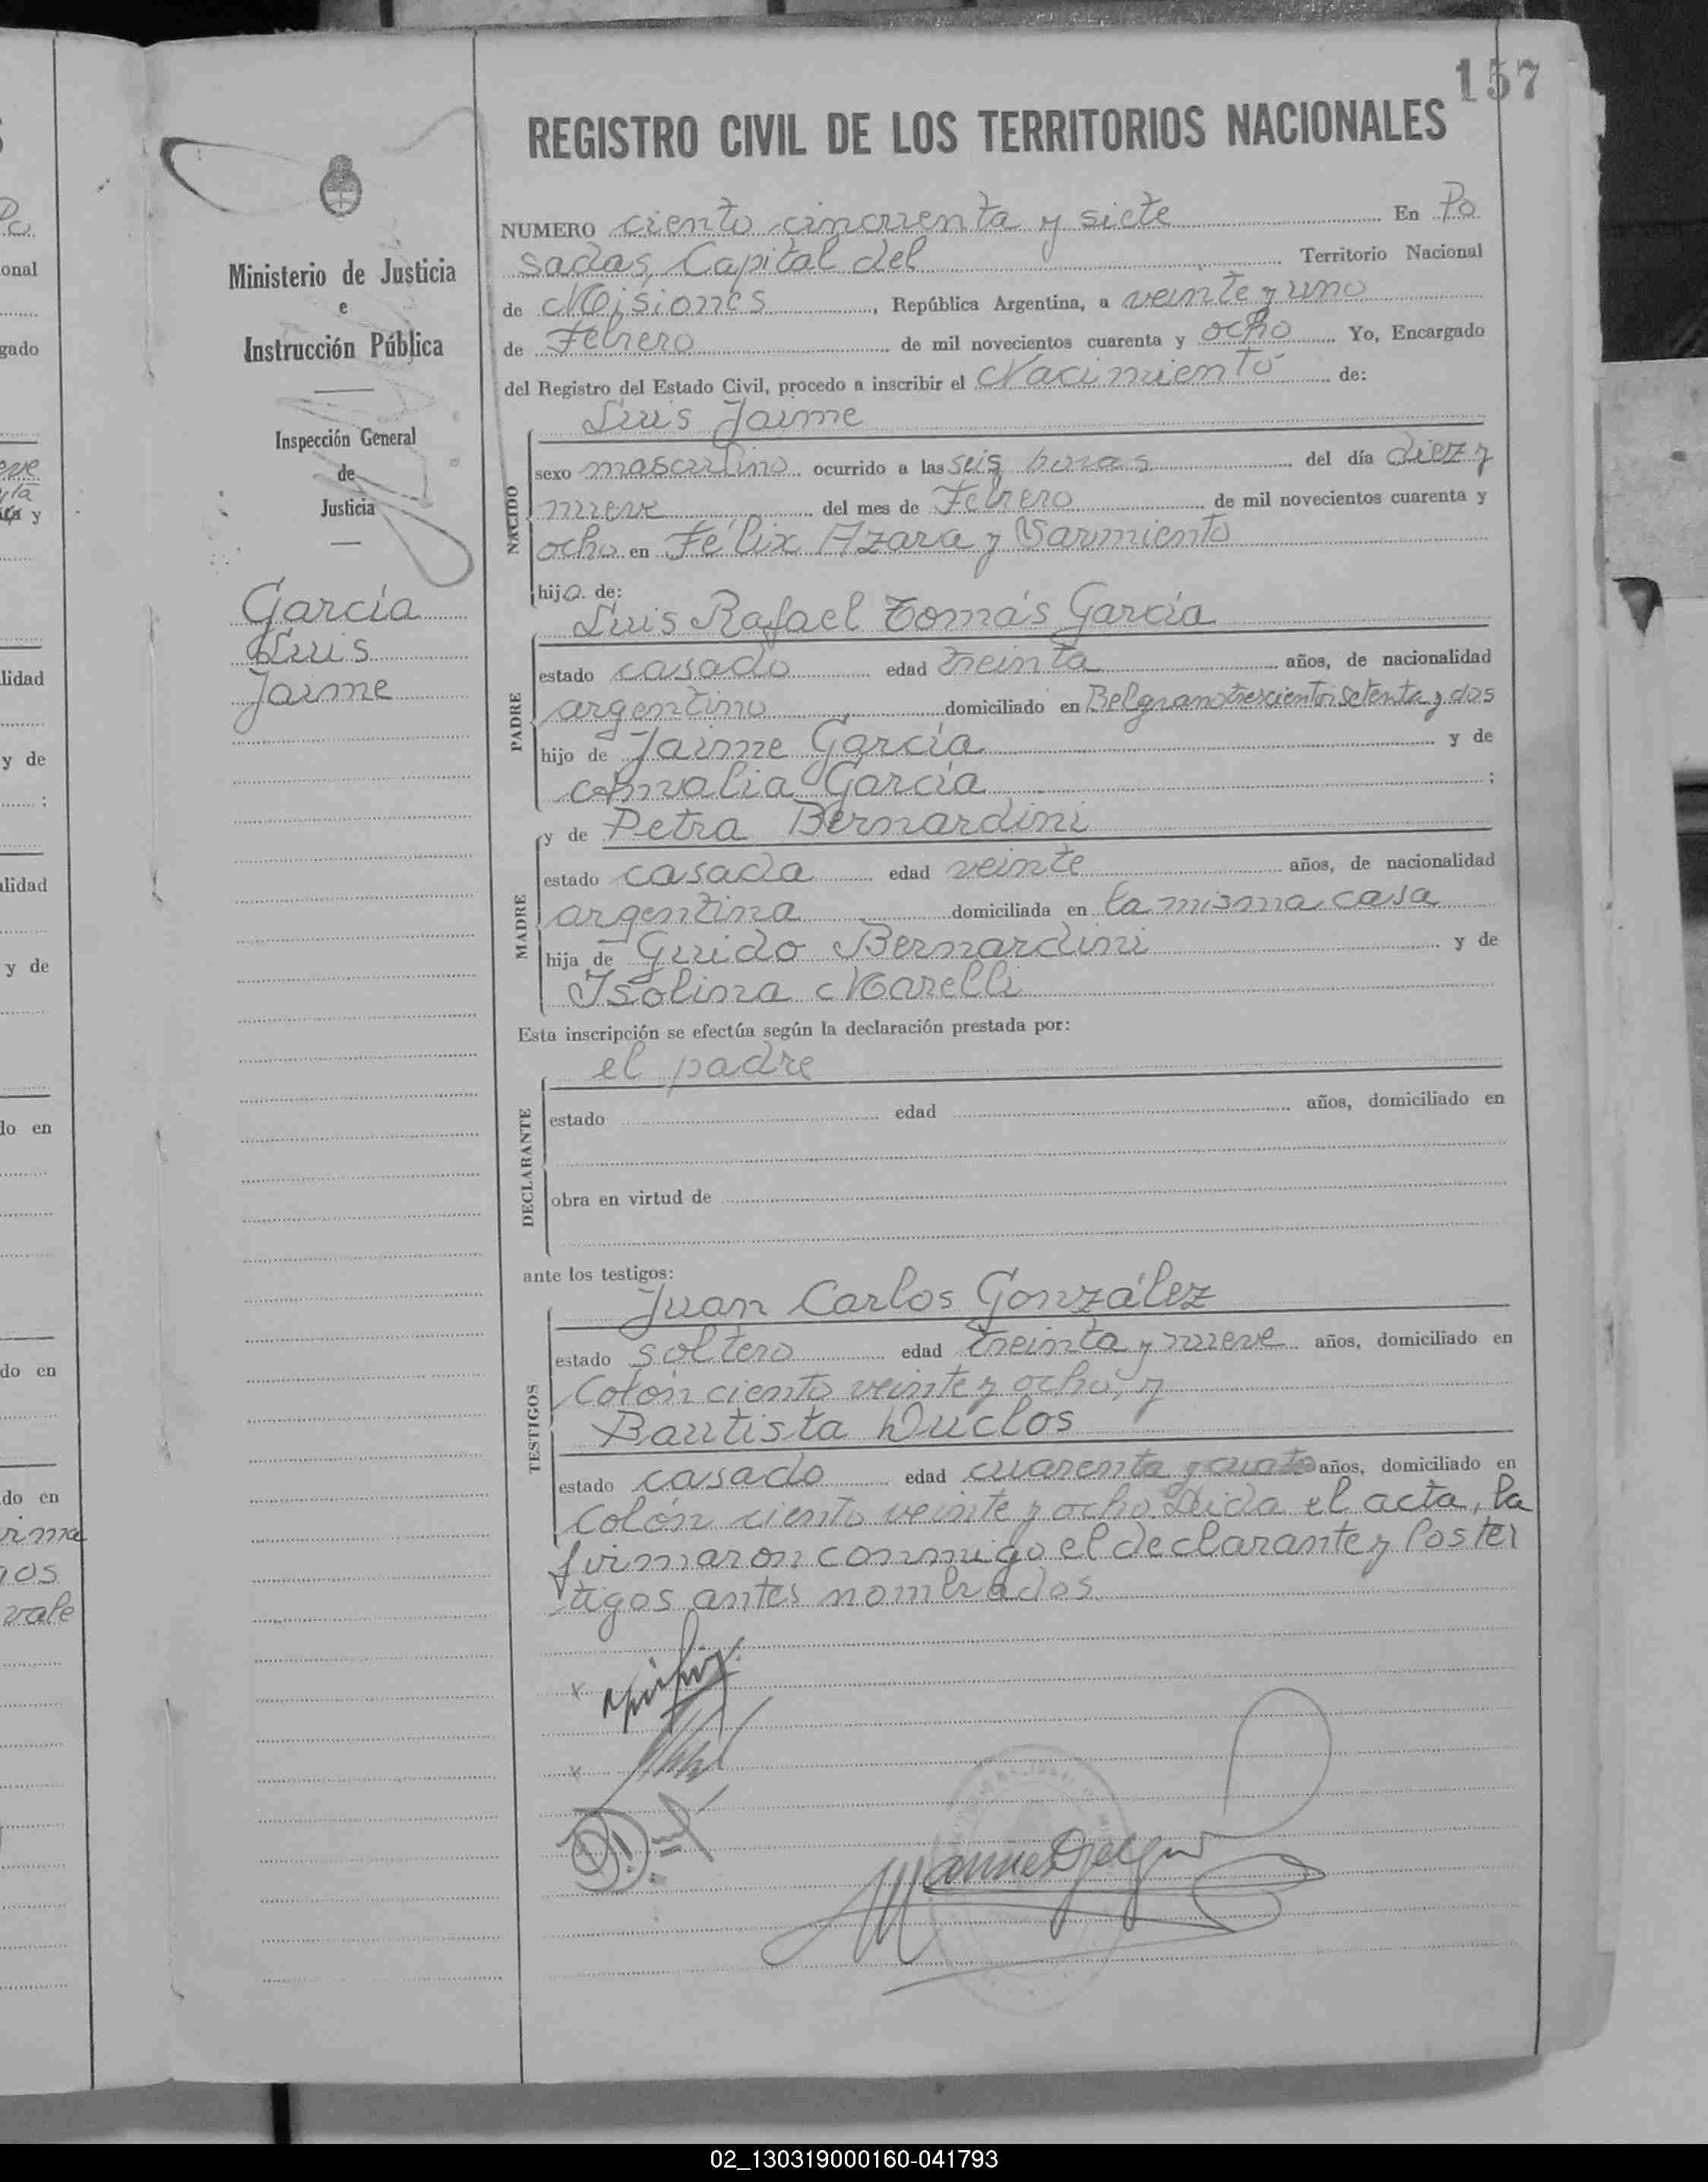 157
REGISTRO CIVIL DE LOS TERRITORIOS NACIONALES
Ministerio de Justicia
e
Instrucción Pública
Inspección General
de
Justicia
García
Luis
Jaime
NUMERO ciento cincuenta y siete En Po
sadas, Capital del Territorio Nacional
de Misiones, República Argentina, a veinte y uno
de Febrero de mil novecientos cuarenta y ocho Yo, Encargado
del Registro del Estado Civil, procedo a inscribir el Nacimiento de:
NACIDO
Luis Jaime
sexo masculino ocurrido a las seis horas del día diez y
nueve del mes de Febrero de mil novecientos cuarenta y
ocho en Félix Azara y Sarmiento
hijo de:
PADRE
Luis Rafael Tomás García
estado casado edad treinta años, de nacionalidad
argentino domiciliado en Belgrano trescientos setenta y dos
hijo de Jaime García y de
Amalia García ;
MADRE
y de Petra Bernardini
estado casada edad veinte años, de nacionalidad
argentina domiciliada en la misma casa
hija de Guido Bernardini y de
Isolina Marelli
Esta inscripción se efectúa según la declaración prestada por:
DECLARANTE
el padre
estado edad años, domiciliado en
obra en virtud de
ante los testigos:
TESTIGOS
Juan Carlos González
estado soltero edad treinta y nueve años, domiciliado en
Colón ciento veinte y ocho, y
Bautista Duclos
estado casado edad cuarenta y cuatro años, domiciliado en
Colón ciento veinte y ocho. Leida el acta, la
firmaron conmigo el declarante y los tes
tigos antes nombrados.
lidad
y de
lidad
y de
do en
do en
do en
vale
02_130319000160-041793